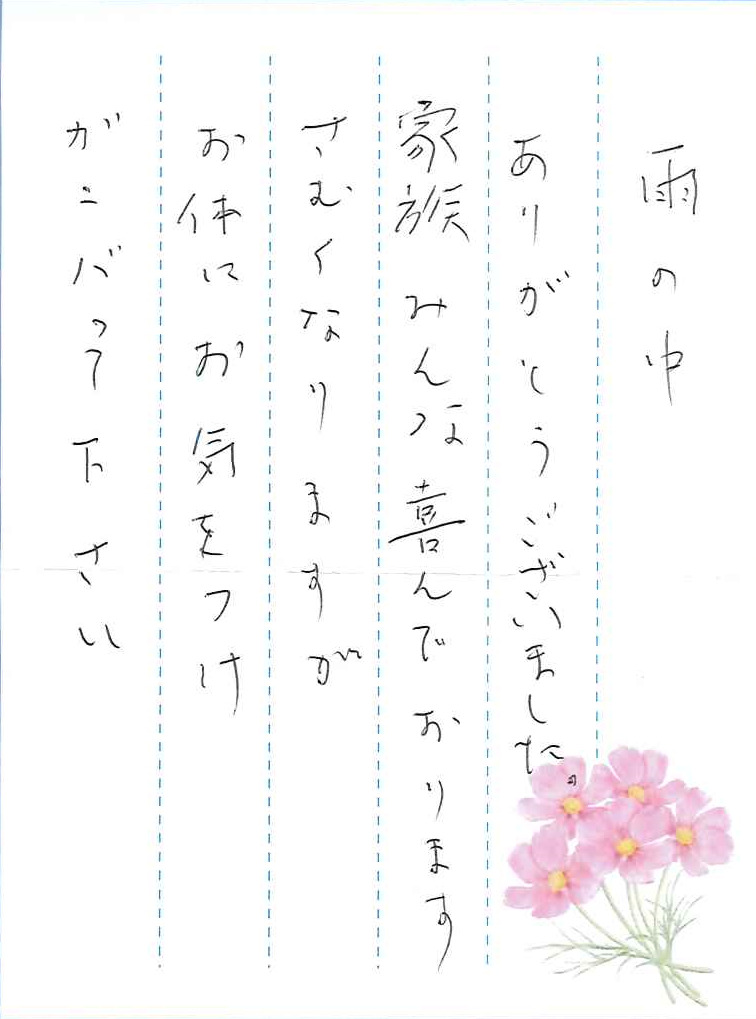 雨の中
ありがとうございました。
家族みんな喜んでおります
さむくなりますが
お体にお気をつけ
がンバって下さい